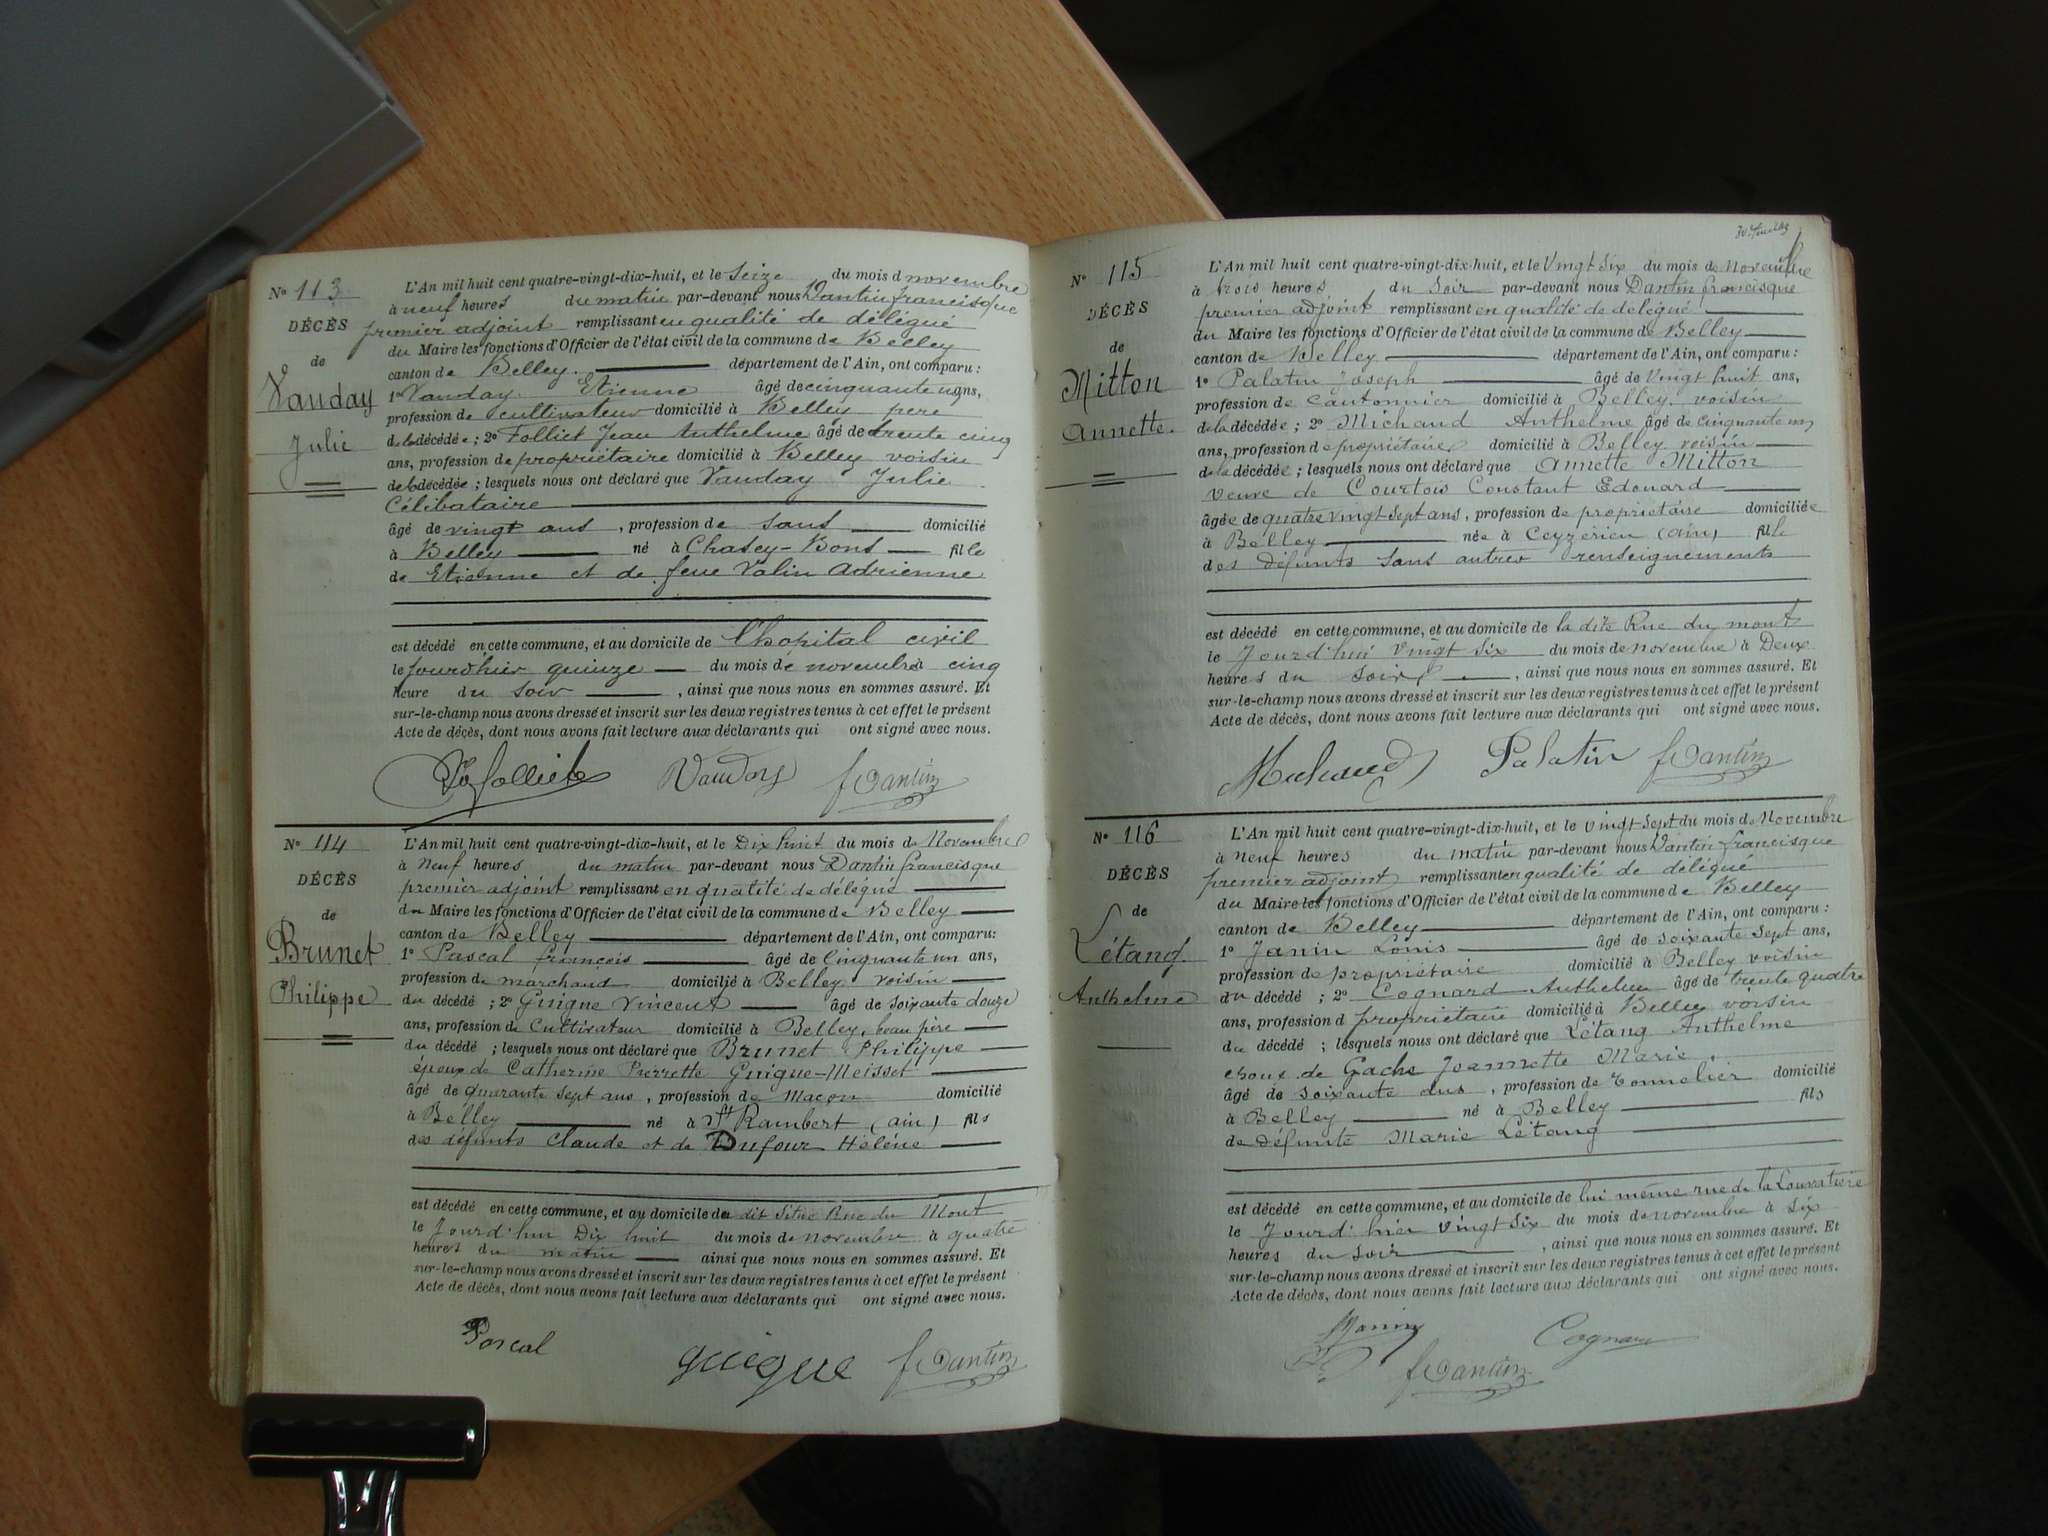 N° 113
DÉCÈS
de
Vauday
Julie
L'An mil huit cent quatre-vingt-dix-huit, et le Seize du mois d novembre
à neuf heures du matin par-devant nous Dantin francisque
premier adjoint remplissant en qualité de délégué
du Maire les fonctions d'Officier de l'état civil de la commune de Belley
canton de Belley. département de l'Ain, ont comparu :
1° Vauday Etienne âgé de cinquante ans,
profession de cultivateur domicilié à Belley père
de la décédée ; 2° Folliet Jean Anthelme âgé de trente cinq
ans, profession de propriétaire domicilié à Belley voisin
de la décédée ; lesquels nous ont déclaré que Vauday Julie
Célibataire
âgé de vingt ans , profession de sans domicilié
à Belley né à Chazey-Bons fille
de Etienne et de feue Valin Adrienne
est décédé en cette commune, et au domicile de l'hopital civil
le jourd'hier quinze du mois de novembre à cinq
heure du soir , ainsi que nous nous en sommes assuré. Et
sur-le-champ nous avons dressé et inscrit sur les deux registres tenus à cet effet le présent
Acte de décès, dont nous avons fait lecture aux déclarants qui ont signé avec nous.
Folliet Vauday f Dantin
N° 114
DÉCÈS
de
Brunet
Philippe
L'An mil huit cent quatre-vingt-dix-huit, et le Dix huit du mois d Novembre
à Neuf heures du matin par-devant nous Dantin francisque
premier adjoint remplissant en qualité de délégué
du Maire les fonctions d'Officier de l'état civil de la commune de Belley
canton de Belley département de l'Ain, ont comparu:
1° Pascal françois âgé de Cinquante un ans,
profession de marchand domicilié à Belley voisin
du décédé ; 2° Guigue Vincent âgé de soixante douze
ans, profession de Cultivateur domicilié à Belley, beau père
du décédé ; lesquels nous ont déclaré que Brunet Philippe
époux de Catherine Pierrette Guigue-Meisset
âgé de quarante sept ans , profession de Maçon domicilié
à Belley né à St Rambert (ain) fils
des défunts Claude et de Dufour Hélène
est décédé en cette commune, et au domicile de dit situé Rue du Mont
le Jourd'hui Dix huit du mois de novembre à quatre
heures du matin ainsi que nous nous en sommes assuré. Et
sur-le-champ nous avons dressé et inscrit sur les deux registres tenus à cet effet le présent
Acte de décès, dont nous avons fait lecture aux déclarants qui ont signé avec nous.
Pascal guigue f Dantin
N° 115
DÉCÈS
de
Mitton
Annette.
L'An mil huit cent quatre-vingt-dix-huit, et le Vingt Six du mois de Novembre
à trois heures du soir par-devant nous Dantin francisque
premier adjoint remplissant en qualité de délégué
du Maire les fonctions d'Officier de l'état civil de la commune de Belley
canton de Belley département de l'Ain, ont comparu :
1° Palatin Joseph âgé de vingt huit ans,
profession de cantonnier domicilié à Belley. voisin
de la décédée ; 2° Michaud Anthelme âgé de cinquante un
ans, profession de propriétaire domicilié à Belley voisin
de la décédée ; lesquels nous ont déclaré que Annette Mitton
veuve de Courtois Constant Edouard
âgée de quatre vingt sept ans, profession de propriétaire domiciliée
à Belley née à Ceyzérieu (ain) fille
des défunts sans autres renseignements
est décédé en cette commune, et au domicile de la dite Rue du mont
le Jourd'hui vingt six du mois de novembre à Deux
heures du soir , ainsi que nous nous en sommes assuré. Et
sur-le-champ nous avons dressé et inscrit sur les deux registres tenus à cet effet le présent
Acte de décès, dont nous avons fait lecture aux déclarants qui ont signé avec nous.
Michaud Palatin f Dantin
N° 116
DÉCÈS
de
Létang.
Anthelme
L'An mil huit cent quatre-vingt-dix-huit, et le vingt sept du mois de Novembre
à neuf heures du matin par-devant nous Dantin francisque
premier adjoint remplissant en qualité de délégué
du Maire les fonctions d'Officier de l'état civil de la commune de Belley
canton de Belley département de l'Ain, ont comparu :
1° Janin Louis âgé de soixante sept ans,
profession de propriétaire domicilié à Belley voisin
du décédé ; 2° Cognard Anthelme âgé de trente quatre
ans, profession d propriétaire domicilié à Belley voisin
du décédé ; lesquels nous ont déclaré que Létang Anthelme
époux de Gache Jeannette Marie
âgé de soixante ans , profession de tonnelier domicilié
à Belley né à Belley fils
de défunte Marie Létang
est décédé en cette commune, et au domicile de lui même rue de la Louvatière
le Jourd'hier vingt six du mois de novembre à six
heures du soir , ainsi que nous nous en sommes assuré. Et
sur-le-champ nous avons dressé et inscrit sur les deux registres tenus à cet effet le présent
Acte de décès, dont nous avons fait lecture aux déclarants qui ont signé avec nous.
Janin Cognard
f Dantin